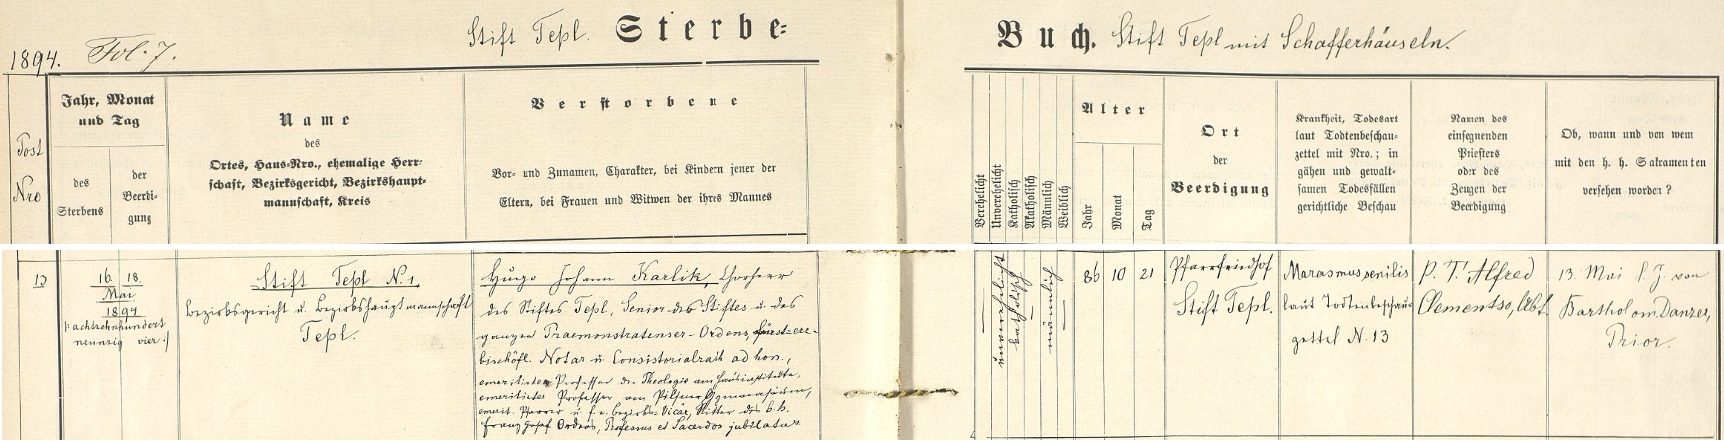 Stift Tepl. Sterbe=
Buch. Stift Tepl mit Schafferhäuseln.
1894. Fol. 7.
Post
Nro
Jahr, Monat
und Tag
des
Sterbens
der
Beerdi-
gung
Name
des
Ortes, Haus-Nro., ehemalige Herr-
schaft, Bezirksgericht, Bezirkshaupt-
mannschaft, Kreis
Verstorbene
Vor- und Zunamen, Charakter, bei Kindern jener der
Eltern, bei Frauen und Witwen der ihres Mannes
Verehelicht
Unverehelicht
Katholisch
Akatholisch
Männlich
Weiblich
Alter
Jahr
Monat
Tag
Ort
der
Beerdigung
Krankheit, Todesart
laut Todtenbeschau-
zettel mit Nro.; in
gähen und gewalt-
samen Todesfällen
gerichtliche Beschau
Namen des
einsegnenden
Priesters
oder des
Zeugen der
Beerdigung
Ob, wann und von wem
mit den h. h. Sakramenten
versehen worden?
13
16. 18.
Mai
1894
|: achtzehnhundert
neunzig vier :|
Stift Tepl N. 1.
Bezirksgericht u. Bezirkshauptmannschaft
Tepl.
Hugo Johann Karlik, Chorherr
des Stiftes Tepl, Senior des Stiftes u. des
ganzen Praemonstratenser-Ordens, fürst-erz-
bischöfl. Notar u Consistorialrath ad hon.,
emeritirter Professor der Theologie am Hausinstitute,
emeritirter Professor am Pilsner Gymnasium,
emerit. Pfarrer u f. e. Bezirks-Vicär, Ritter des k. k.
Franz Josef Ordens, Professus et Sacerdos jubilatus
unverehelicht
katholisch
männlich
86 10 21
Pfarrfriedhof
Stift Tepl.
Marasmus senilis
laut Todtenbeschau-
zettel N. 13
P. T. Alfred
Clementso, Abt.
13. Mai l. J. von
Barthol om. Danzer,
Prior.